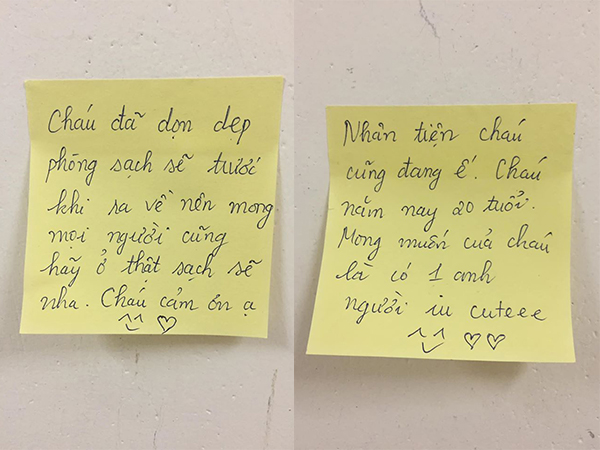 Cháu đã dọn dẹp
phòng sạch sẽ tươí
khi sa về nên mong
mọi người cũng
hãy ở thật sạch sẽ
nha. Cháu cảm ơn ạ
Nhân tiện cháu
cũng đang ế. Cháu
năm nay 20 tuổi.
Mong muốn của cháu
là có 1 anh
người iu cuteee